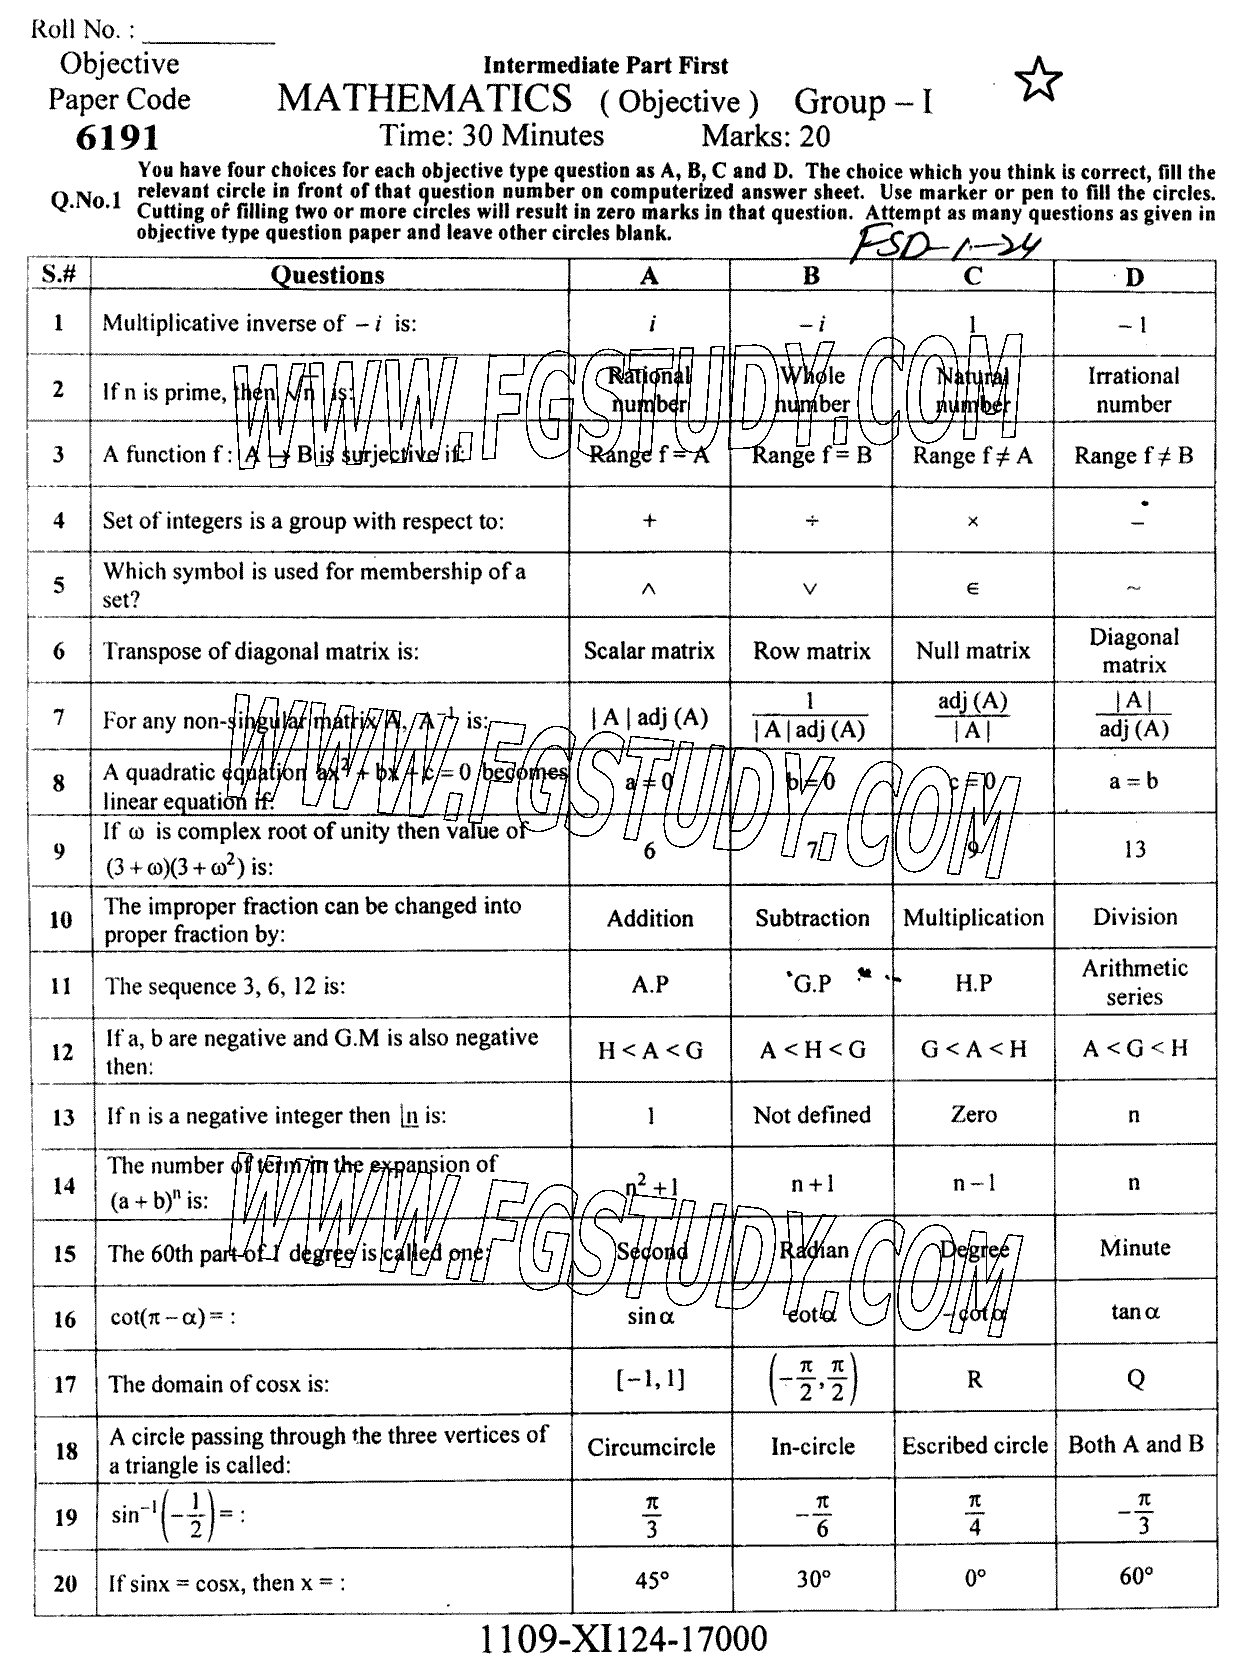 Roll No. : __________
Objective
Paper Code
6191
Intermediate Part First
MATHEMATICS ( Objective ) Group – I
Time: 30 Minutes Marks: 20
Q.No.1
You have four choices for each objective type question as A, B, C and D. The choice which you think is correct, fill the
relevant circle in front of that question number on computerized answer sheet. Use marker or pen to fill the circles.
Cutting of filling two or more circles will result in zero marks in that question. Attempt as many questions as given in
objective type question paper and leave other circles blank.
FSD-1-24
S.# Questions A B C D
1 Multiplicative inverse of – i is: i – i 1 – 1
2 If n is prime, then √n is: Rational number Whole number Natural number Irrational number
3 A function f : A → B is surjective if: Range f = A Range f = B Range f ≠ A Range f ≠ B
4 Set of integers is a group with respect to: + ÷ × –
5 Which symbol is used for membership of a
set? ∧ ∨ ∈ ~
6 Transpose of diagonal matrix is: Scalar matrix Row matrix Null matrix Diagonal matrix
7 For any non-singular matrix A, A⁻¹ is: | A | adj (A) 1 / | A | adj (A) adj (A) / | A | | A | / adj (A)
8 A quadratic equation ax² + bx + c = 0 becomes
linear equation if: a = 0 b = 0 c = 0 a = b
9 If ω is complex root of unity then value of
(3 + ω)(3 + ω²) is: 6 7 9 13
10 The improper fraction can be changed into
proper fraction by: Addition Subtraction Multiplication Division
11 The sequence 3, 6, 12 is: A.P G.P H.P Arithmetic series
12 If a, b are negative and G.M is also negative
then: H < A < G A < H < G G < A < H A < G < H
13 If n is a negative integer then |n is: 1 Not defined Zero n
14 The number of term in the expansion of
(a + b)ⁿ is: n² + 1 n + 1 n – 1 n
15 The 60th part of 1 degree is called one: Second Radian Degree Minute
16 cot(π – α) = : sin α cot α – cot α tan α
17 The domain of cosx is: [–1, 1] (–π/2, π/2) R Q
18 A circle passing through the three vertices of
a triangle is called: Circumcircle In-circle Escribed circle Both A and B
19 sin⁻¹(–1/2) = : π/3 –π/6 π/4 –π/3
20 If sinx = cosx, then x = : 45° 30° 0° 60°
1109-XI124-17000
WWW.FGSTUDY.COM
WWW.FGSTUDY.COM
WWW.FGSTUDY.COM